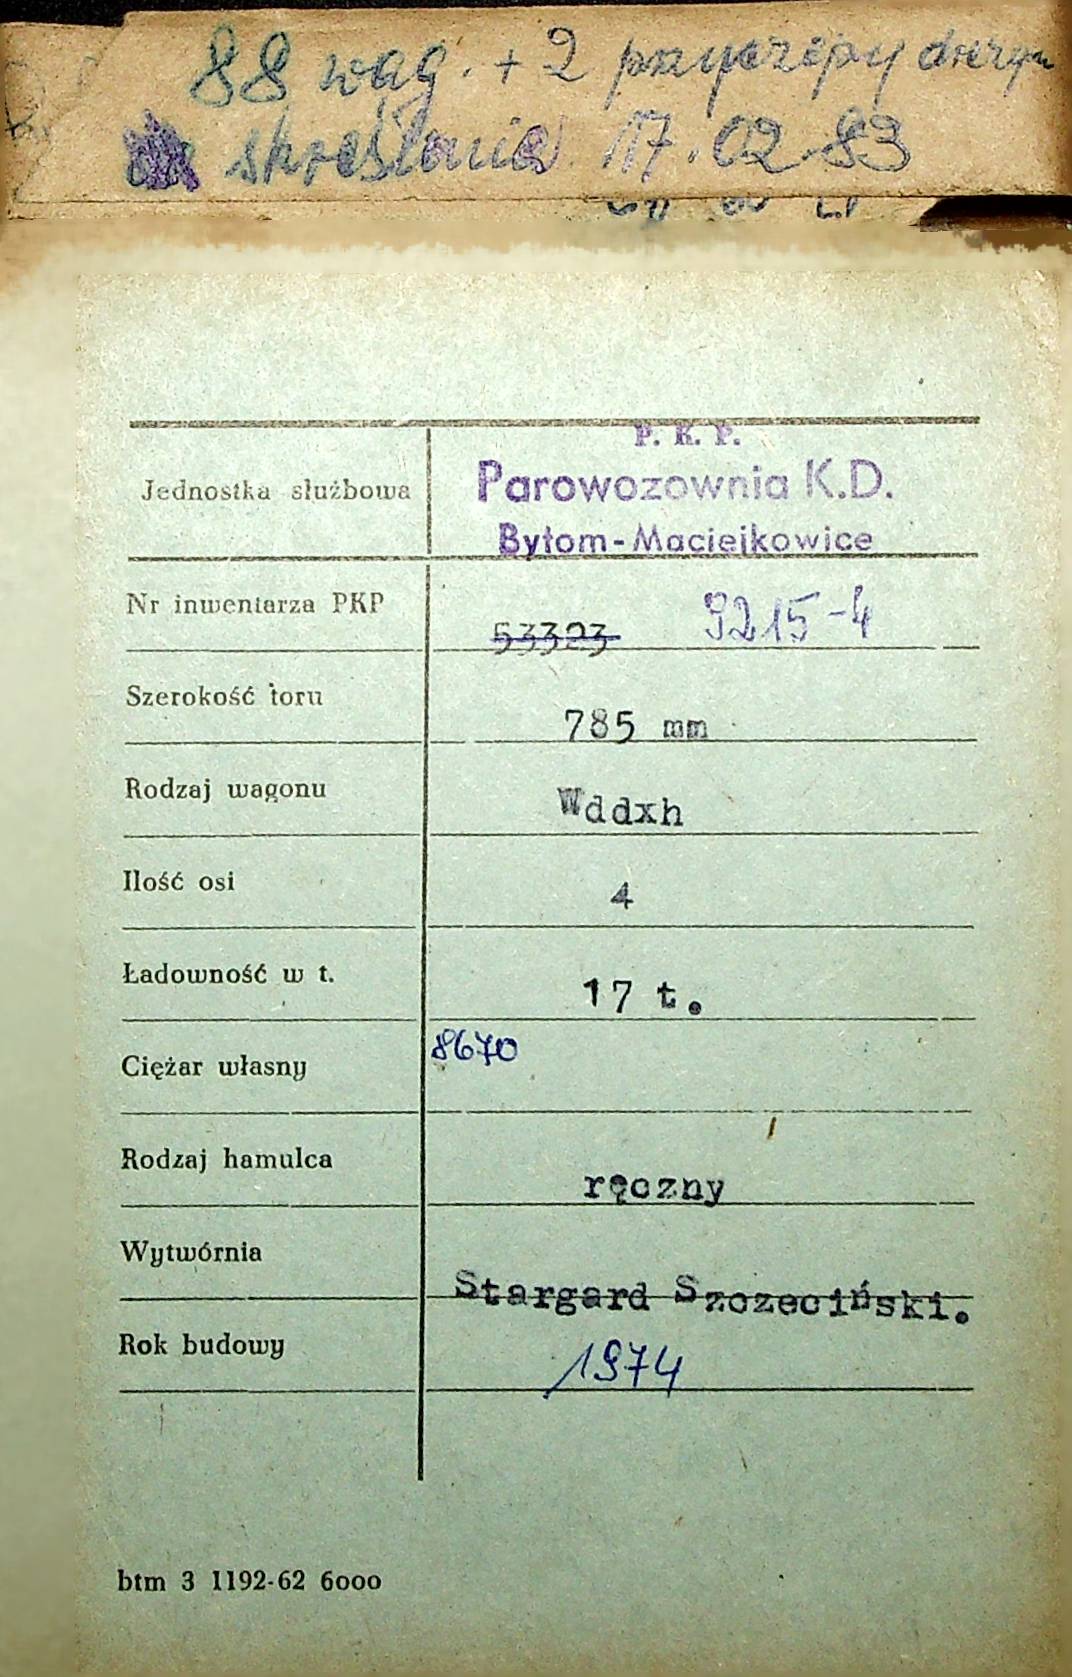 88 wag. + 2 przyczepy drezyn
skreślenie 17.02.83
P. K. P.
Jednostka służbowa Parowozownia K.D.
Bytom-Maciejkowice
Nr inwentarza PKP 53323 9215-4
Szerokość toru 785 mm
Rodzaj wagonu Wddxh
Ilość osi 4
Ładowność w t. 17 t.
Ciężar własny 8670
Rodzaj hamulca ręczny
Wytwórnia Stargard Szczeciński.
Rok budowy 1974
btm 3 1192-62 6000